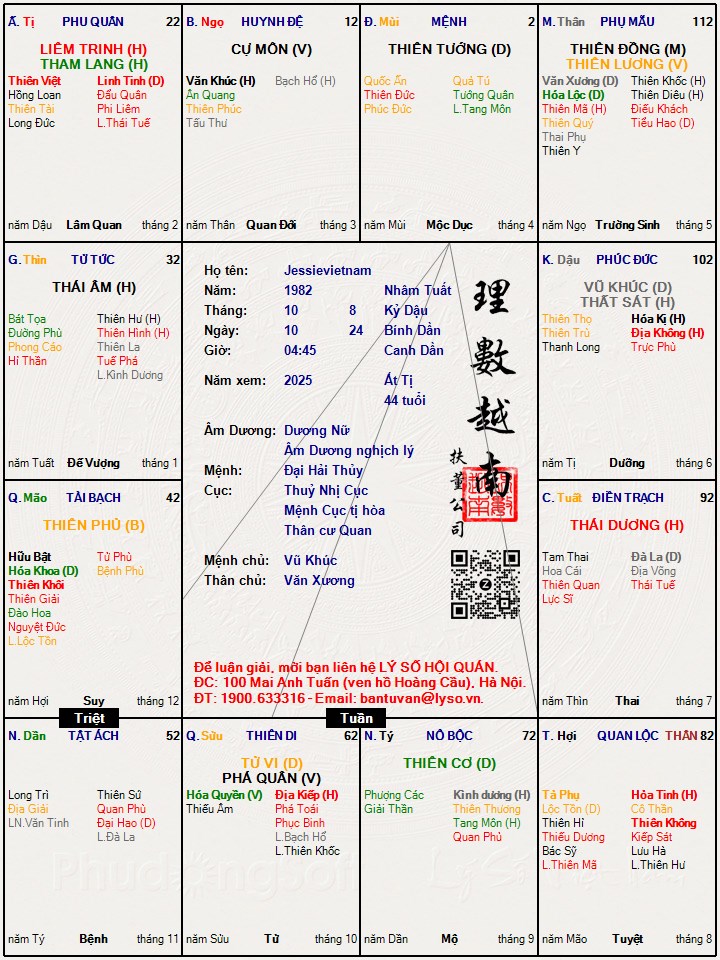 Ấ. Tị PHU QUÂN 22
LIÊM TRINH (H)
THAM LANG (H)
Thiên Việt Linh Tinh (D)
Hồng Loan Đẩu Quân
Thiên Tài Phi Liêm
Long Đức L.Thái Tuế
năm Dậu Lâm Quan tháng 2
B. Ngọ HUYNH ĐỆ 12
CỰ MÔN (V)
Văn Khúc (H) Bạch Hổ (H)
Ân Quang
Thiên Phúc
Tấu Thư
năm Thân Quan Đới tháng 3
Đ. Mùi MỆNH 2
THIÊN TƯỚNG (D)
Quốc Ấn Quả Tú
Thiên Đức Tướng Quân
Phúc Đức L.Tang Môn
năm Mùi Mộc Dục tháng 4
M. Thân PHỤ MẪU 112
THIÊN ĐỒNG (M)
THIÊN LƯƠNG (V)
Văn Xương (D) Thiên Khốc (H)
Hóa Lộc (D) Thiên Diêu (H)
Thiên Mã (H) Điếu Khách
Thiên Quý Tiểu Hao (D)
Thai Phụ
Thiên Y
năm Ngọ Trường Sinh tháng 5
G. Thìn TỬ TỨC 32
THÁI ÂM (H)
Bát Tọa Thiên Hư (H)
Đường Phù Thiên Hình (H)
Phong Cáo Thiên La
Hỉ Thần Tuế Phá
L.Kình Dương
năm Tuất Đế Vượng tháng 1
Họ tên: Jessievietnam
Năm: 1982 Nhâm Tuất
Tháng: 10 8 Kỷ Dậu
Ngày: 10 24 Bính Dần
Giờ: 04:45 Canh Dần
Năm xem: 2025 Ất Tị
44 tuổi
Âm Dương: Dương Nữ
Âm Dương nghịch lý
Mệnh: Đại Hải Thủy
Cục: Thuỷ Nhị Cục
Mệnh Cục tị hòa
Thân cư Quan
Mệnh chủ: Vũ Khúc
Thân chủ: Văn Xương
理數越南
扶董公司
Để luận giải, mời bạn liên hệ LÝ SỐ HỘI QUÁN.
ĐC: 100 Mai Anh Tuấn (ven hồ Hoàng Cầu), Hà Nội.
ĐT: 1900.633316 - Email: bantuvan@lyso.vn.
K. Dậu PHÚC ĐỨC 102
VŨ KHÚC (D)
THẤT SÁT (H)
Thiên Thọ Hóa Kị (H)
Thiên Trù Địa Không (H)
Thanh Long Trực Phù
năm Tị Dưỡng tháng 6
Q. Mão TÀI BẠCH 42
THIÊN PHỦ (B)
Hữu Bật Tử Phù
Hóa Khoa (D) Bệnh Phù
Thiên Khôi
Thiên Giải
Đào Hoa
Nguyệt Đức
L.Lộc Tồn
năm Hợi Suy tháng 12
C. Tuất ĐIỀN TRẠCH 92
THÁI DƯƠNG (H)
Tam Thai Đà La (D)
Hoa Cái Địa Võng
Thiên Quan Thái Tuế
Lực Sĩ
năm Thìn Thai tháng 7
Triệt
Tuần
N. Dần TẬT ÁCH 52
Long Trì Thiên Sứ
Địa Giải Quan Phù
LN.Văn Tinh Đại Hao (D)
L.Đà La
năm Tý Bệnh tháng 11
Q. Sửu THIÊN DI 62
TỬ VI (D)
PHÁ QUÂN (V)
Hóa Quyền (V) Địa Kiếp (H)
Thiếu Âm Phá Toái
Phục Binh
L.Bạch Hổ
L.Thiên Khốc
năm Sửu Tử tháng 10
N. Tý NÔ BỘC 72
THIÊN CƠ (D)
Phượng Các Kình dương (H)
Giải Thần Thiên Thương
Tang Môn (H)
Quan Phủ
năm Dần Mộ tháng 9
T. Hợi QUAN LỘC THÂN 82
Tả Phụ Hỏa Tinh (H)
Lộc Tồn (D) Cô Thần
Thiên Hỉ Thiên Không
Thiếu Dương Kiếp Sát
Bác Sỹ Lưu Hà
L.Thiên Mã L.Thiên Hư
năm Mão Tuyệt tháng 8